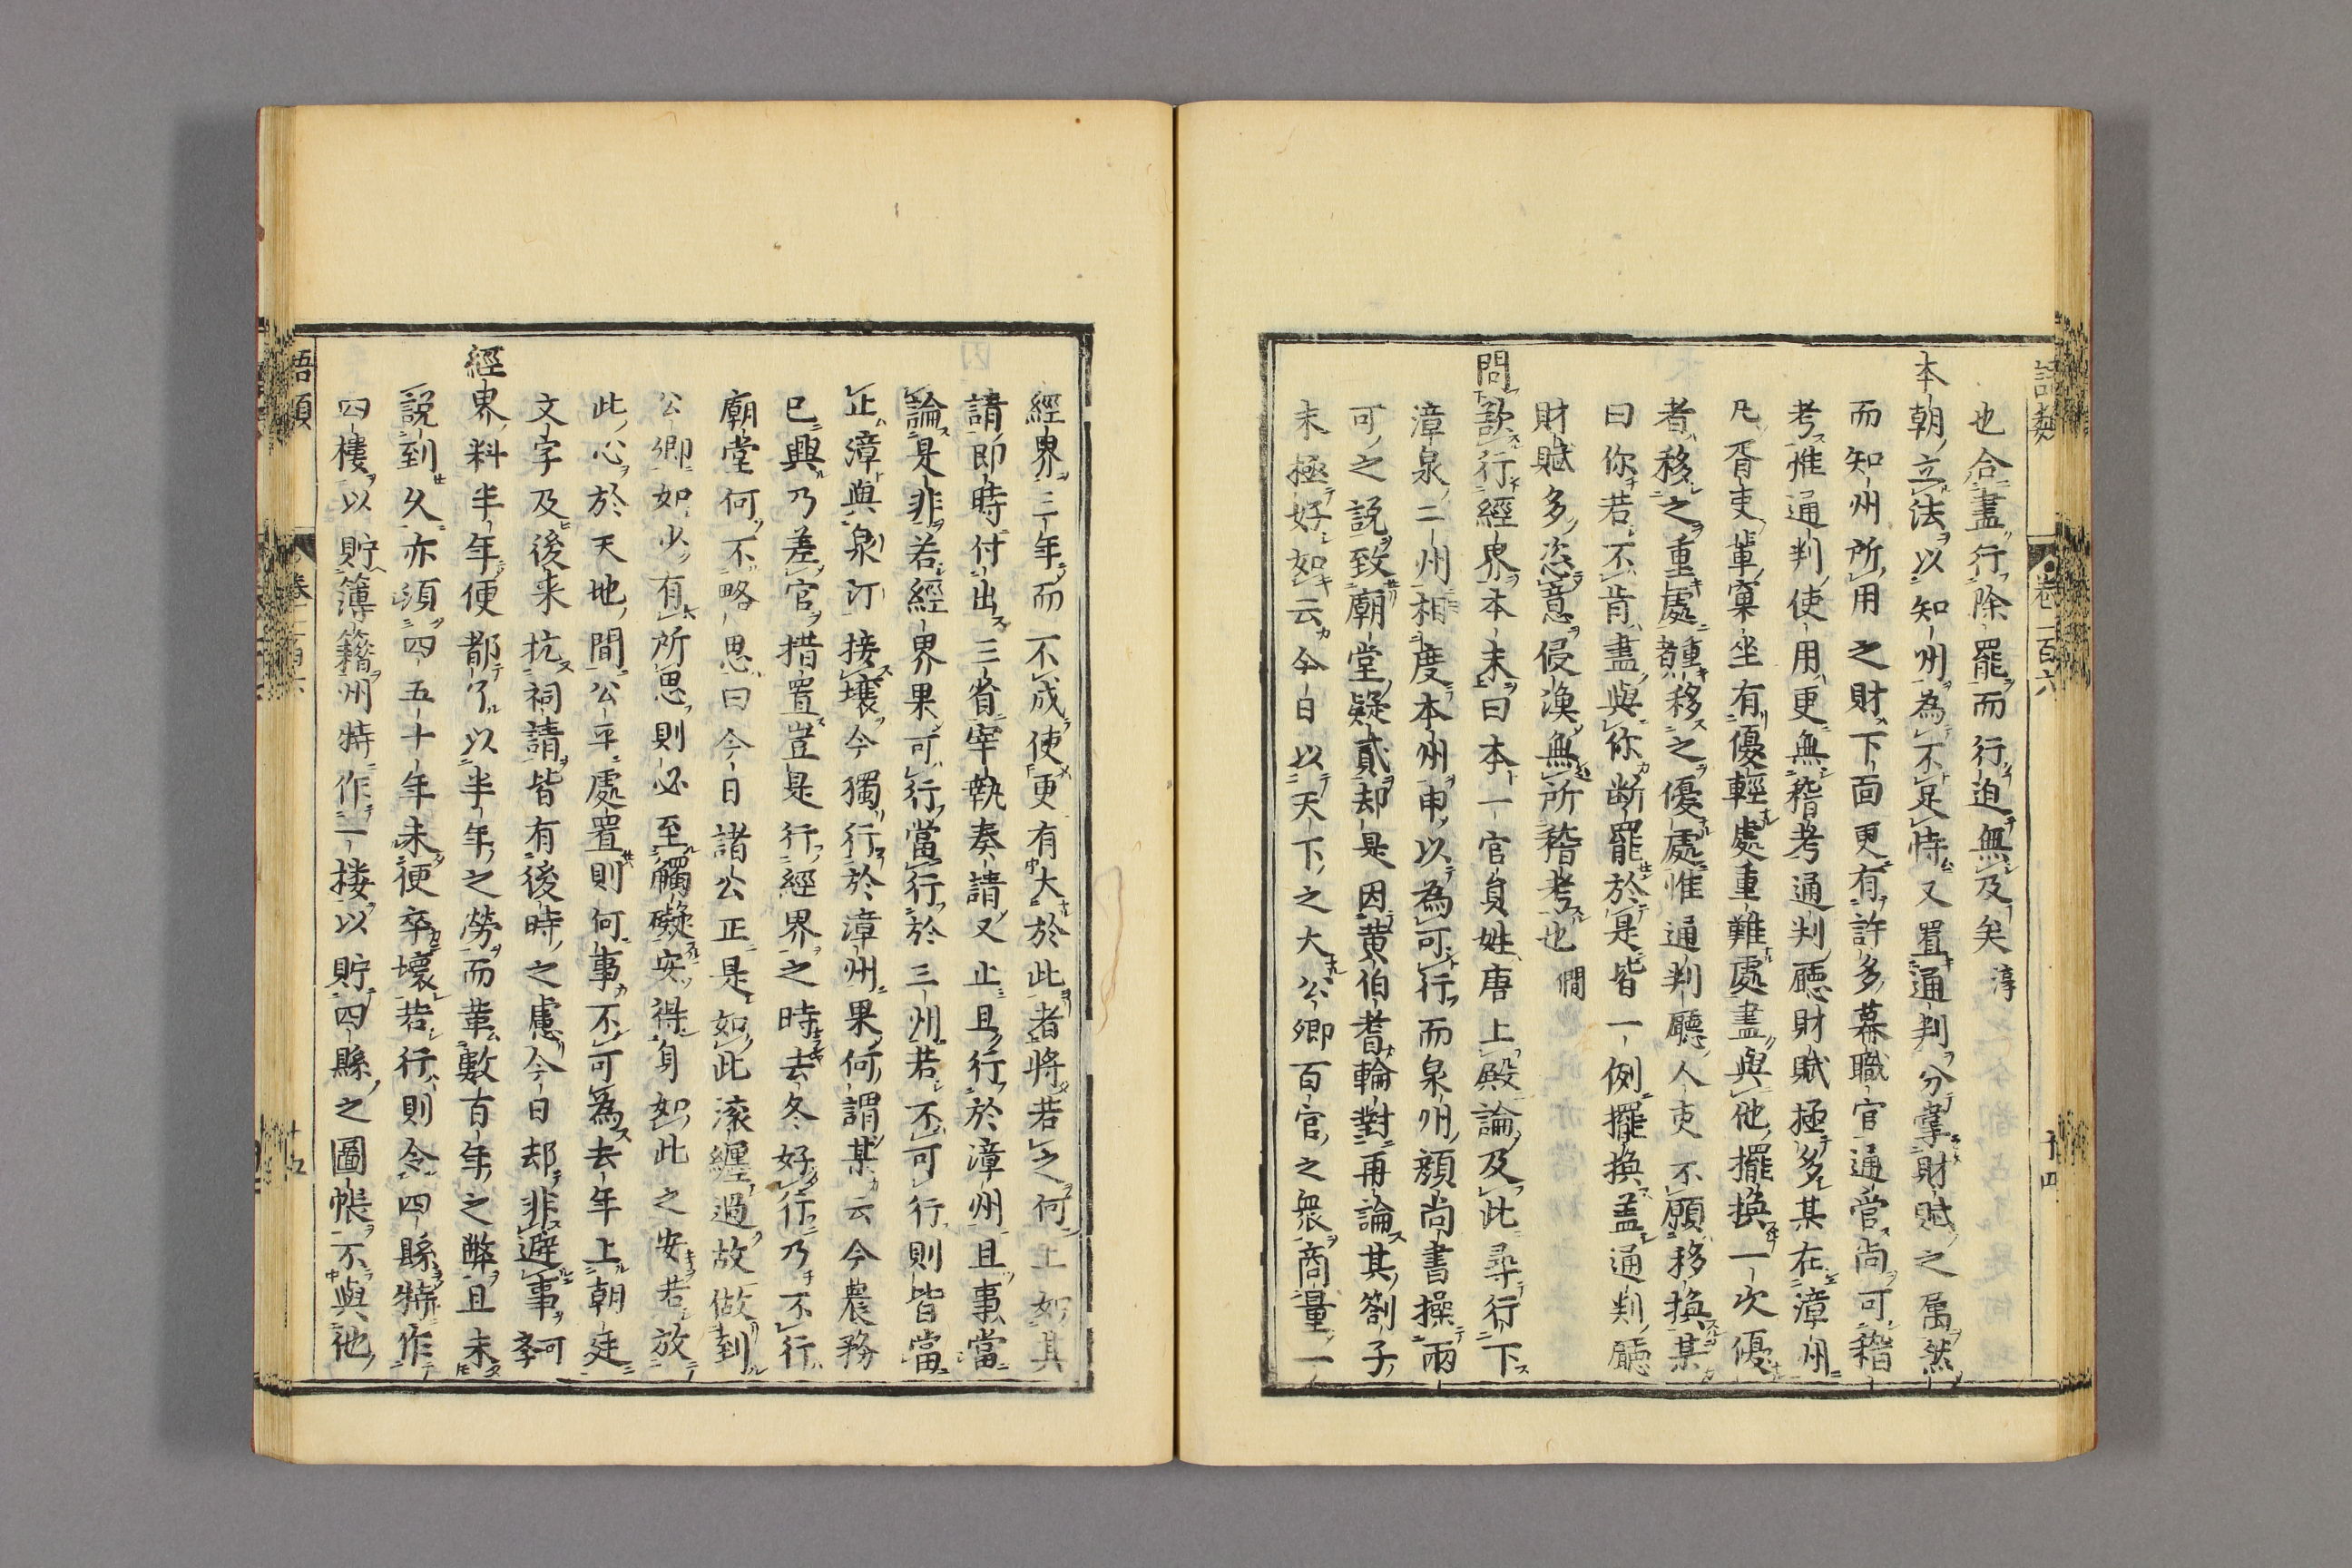 語類 卷一百六 十四
也合盡行除罷而行迫無及矣 淳
本朝立法以知州為不足恃又置通判分掌財賦之属然
而知州所用之財下面更有許多幕職官通管尚可稽
考惟通判使用更無稽考通判廳財賦極多某在漳州
凡胥吏輩窠坐有優輕處重難處盡與他擺換一次優
者移之重處重者移之優處惟通判廳人吏不願移換某
曰你若不肯盡與你斷罷於是皆一例擺換盖通判廳
財賦多恣意侵漁無所稽考也 僩
問欲行經界本末曰本一官員姓唐上殿論及此尋行下
漳泉二州相度本州申以為可行而泉州顏尚書操兩
可之說致廟堂疑貳却是因黄伯耆輪對再論其劄子
末極好如云今日以天下之大公卿百官之衆商量一
經界三年而不成使更有大於此者將若之何上如其
請即時付出三省宰執奏請又止且行於漳州且事當
論是非若經界果可行當行於三州若不可行則皆當
止漳與泉汀接壤今獨行於漳州果何謂某云今農務
已興乃差官措置豈是行經界之時去冬好行乃不行
廟堂何不略思曰今日諸公正是如此滚纏過故做到
公卿如少有所思則必至觸礙安得身如此之安若放
此心於天地間公平處置則何事不可為去年上朝廷
文字及後来抗祠請皆有後時之慮今日却非避事 可學
經界料半年便都了以半年之勞而革數百年之弊且未
說到久亦須四五十年未便卒壞若行則令四縣特作
四樓以貯簿籍州特作一楼以貯四縣之圖帳不與他
語類 卷一百六 十五